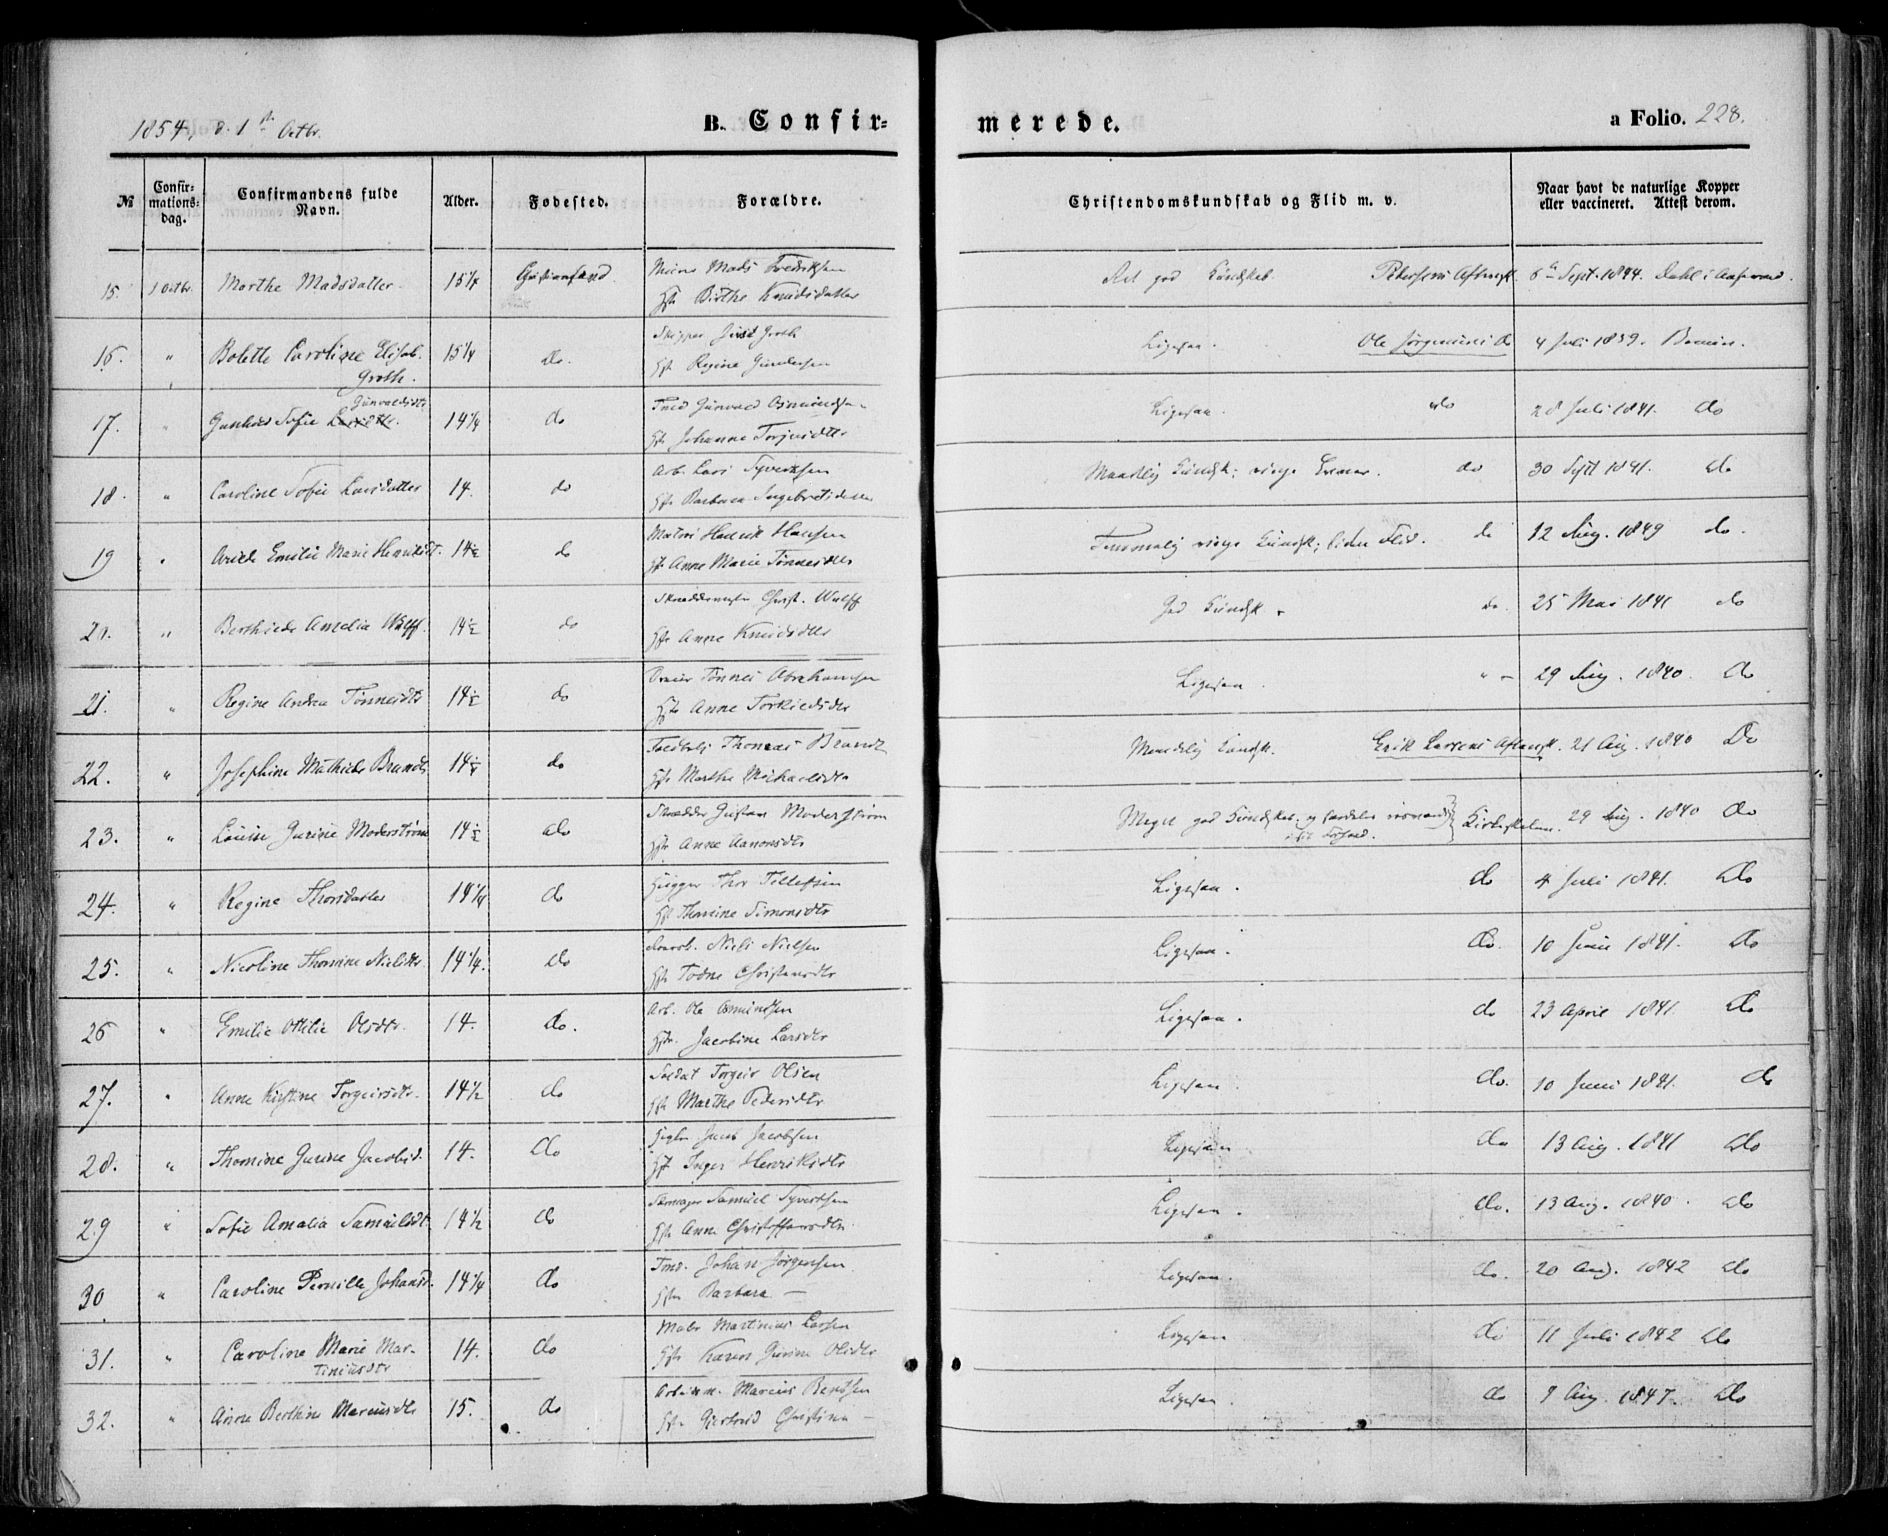 1854, d. 1ste Octbr.
B. Confir=
merede.
a Folio. 228.
№
Confir=
mations=
dag.
Confirmandens fulde
Navn.
Alder.
Fødested.
Forældre.
Christendomskundskab og Flid m. v.
Naar havt de naturlige Kopper
eller vaccineret. Attest derom.
15. 1 Octbr. Marthe Madsdatter. 15¼ Christiansand Mads Fredriksen
Birthe Knudsdatter
god Kundskab 6te Sept. 1844. Dahl
16. " Bolette Caroline Elisab. 15¼ do. Skipper Groth
Groth. Regine Gundersen
Ligesaa. Ole do 4 Juli 1839.
Gunvaldsdtr
17. " Sofie 14¼ do Gunvald Osmundsen
Johanne Torjusdtr
Ligesaa. do 28 Juli 1841. do
18. " Caroline Sofie Larsdatter 14. do Arb. Lars Syvertsen
Barbara Ingebretsdatter
Maadelig Kundsk; ringe do 30 Sept 1841. do
19 " Emilie Marie Henriksdt. 14½ do Matros Henrik Hansen
Anne Marie Tønnesdtr
Temmelig ringe Kundsk; liden Flid. do 12 Aug. 1849 do.
20. " Amalia Wulff. 14½ do Christ. Wulff
Anne Knudsdtr
God Kundsk. do. 25 Mai 1841 do
21. " Regine Andrea Tønnesdtr 14½ do Tønnes Abrahamsen
Anne Torkildsdtr
Ligesaa. " 29 Aug. 1840. do
22. " Josephine Mathilde Brandt 14¼ do Thomas Brandt
Marthe Michaelsdtr
Maadelig Kundsk. Erik Larsens 21 Aug. 1840 Do
23. " Louise Gurine Moderstrøm 14½ do Skrædder Gustav Moderstrøm
Anne Aanonsdtr
Meget god Kundskab. og 29 Aug. 1840 do
24. " Regine Thorsdatter 14¼ do Thor Tellefsen
Thomine Simonsdtr
Ligesaa. do 4 Juli 1841. do
25. " Nicoline Thomine Nielsdtr 14¼. do Niels Nielsen
Todne Christensdtr
Ligesaa. do. 10 Juni 1841. do
26 " Emilie Ottilie Olsdtr. 14. do. Arb. Ole Osmundsen
Jacobine Larsdtr
Ligesaa. do 23 April 1841. do
27. " Anne Kirstine Torgeirsdtr. 14½ do Soldat Torgeir Olsen
Marthe Pedersdtr
Ligesaa. do. 10 Juni 1841. do
28. " Thomine Gurine Jacobsd. 14. Do Jacob Jacobsen
Inger Henriksdtr
Ligesaa do 13 Aug. 1841 do
29 " Sofie Amalia Samuelsdt 14½ do Samuel Syvertsen
Anne Christoffersdtr
Ligesaa. do. 13 Aug. 1840. do
30 " Caroline Pernille Johansd. 14¼ do Johan Jørgensen
Barbara —
Ligesaa. do. 20 Aug. 1842 do
31. " Caroline Marie Mar- 14. do Martinius Larsen
tiniusdtr Karen Gurine Olsdtr
Ligesaa do 11 Juli 1842 do
32. " Anne Berthine Marcusdtr 15. do Marcus Bentsen
Gjertrud Christine —
Ligesaa. do 9 Aug. 1847. do